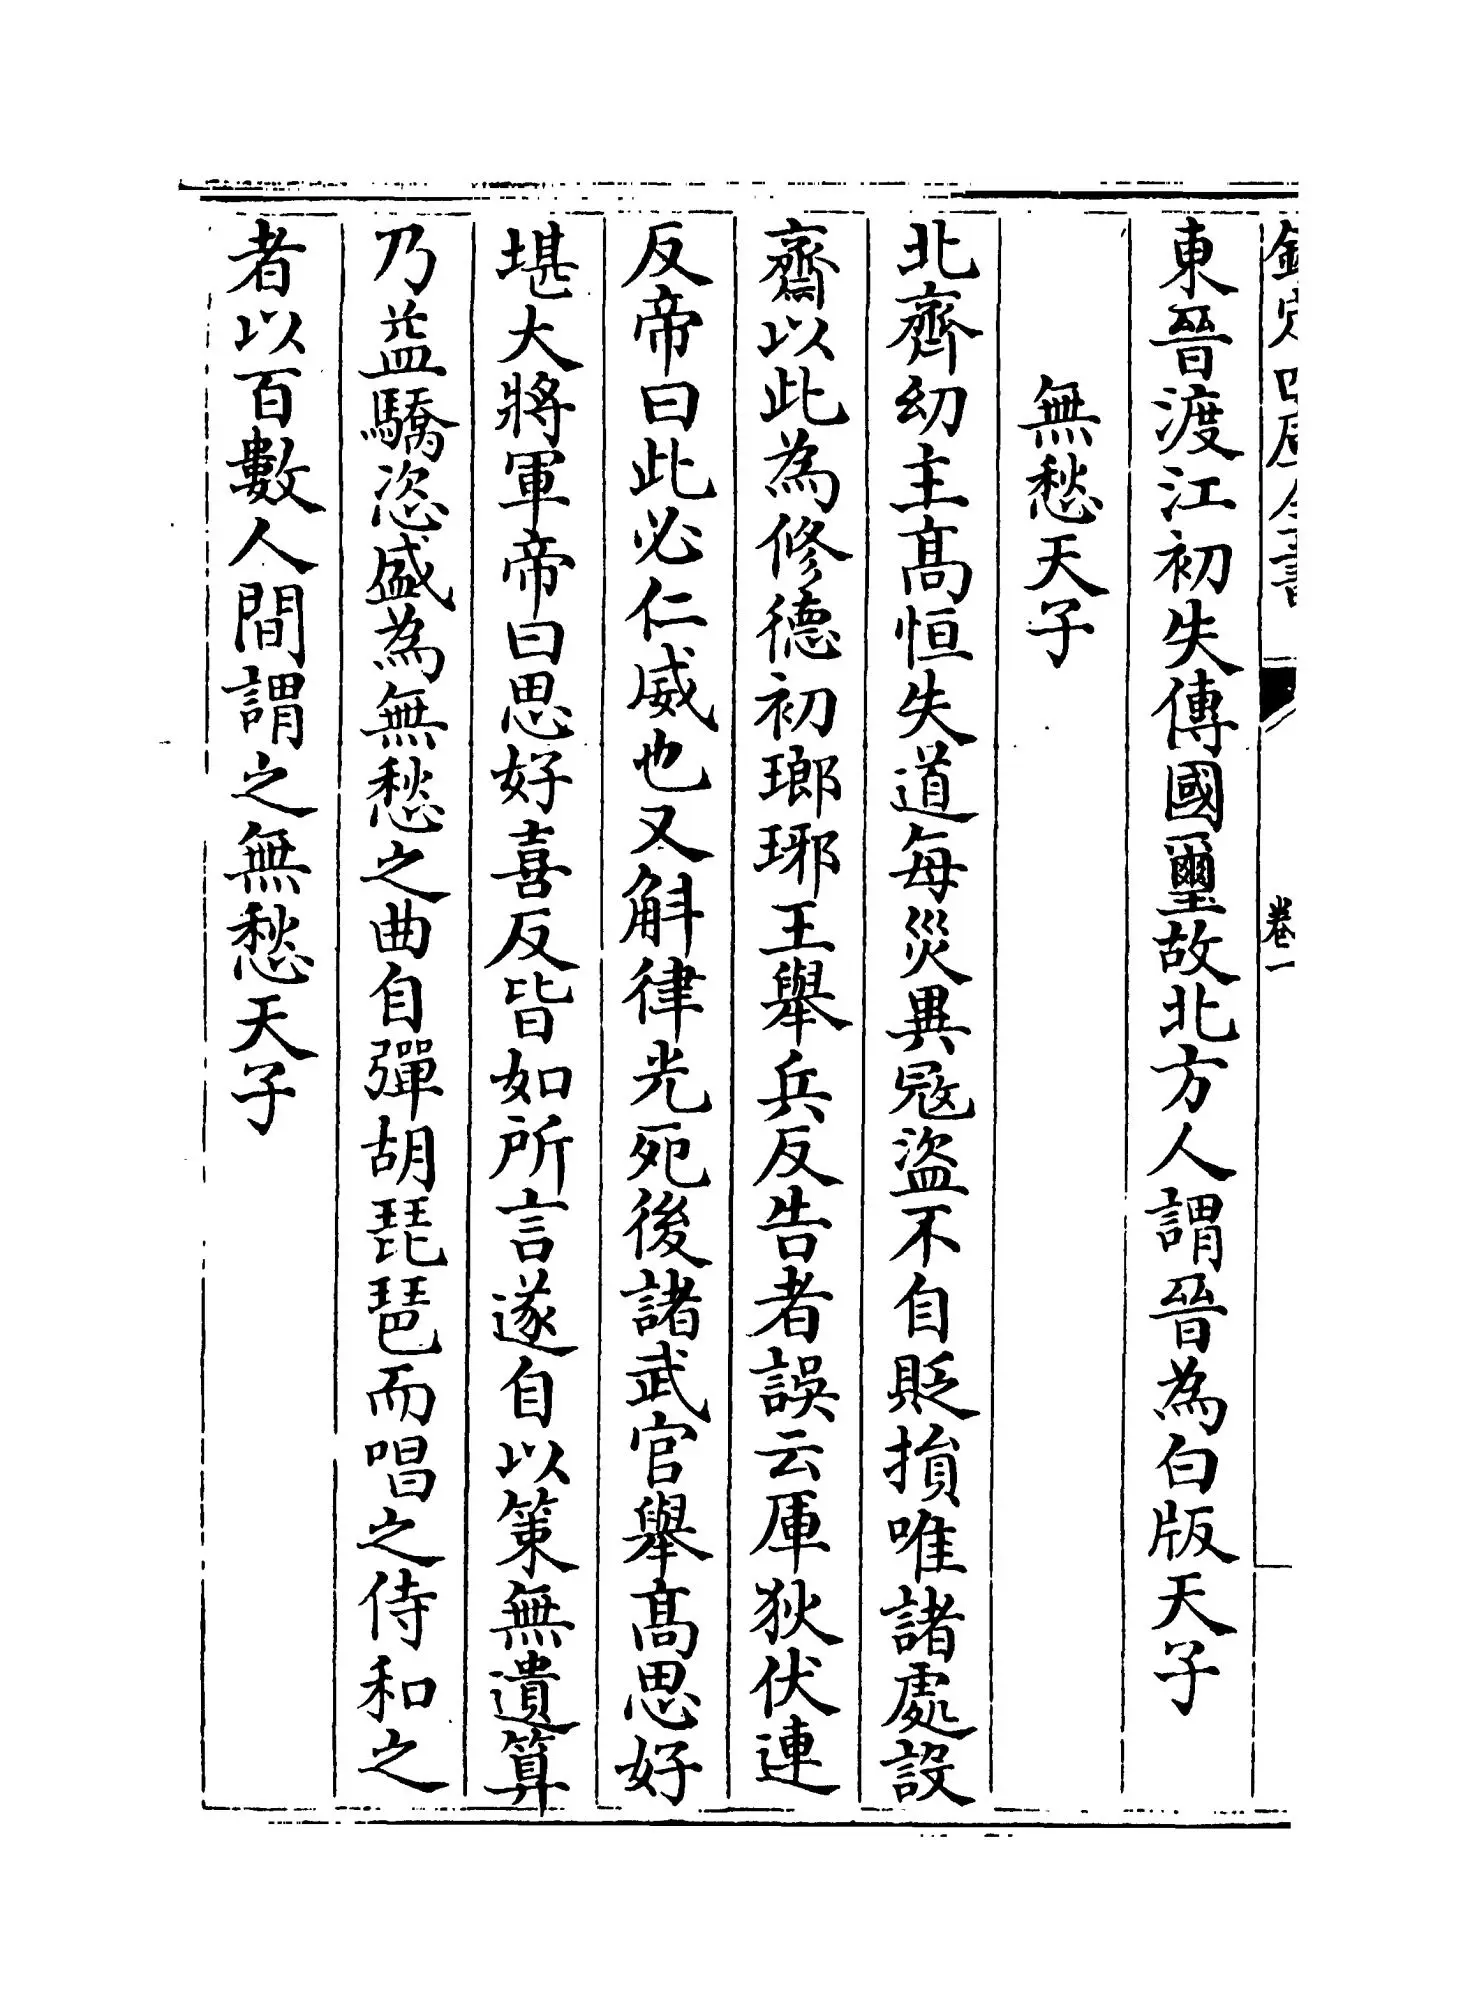 欽定四庫全書
卷一
東晉渡江初失傳國璽故北方人謂晉為白版天子
無愁天子
北齊幼主高恒失道每災異宼盜不自貶損唯諸處設
齋以此為修德初瑯琊王舉兵反告者誤云厙狄伏連
反帝曰此必仁威也又斛律光死後諸武官舉高思好
堪大將軍帝曰思好喜反皆如所言遂自以策無遺算
乃益驕恣盛為無愁之曲自彈胡琵琶而唱之侍和之
者以百數人間謂之無愁天子